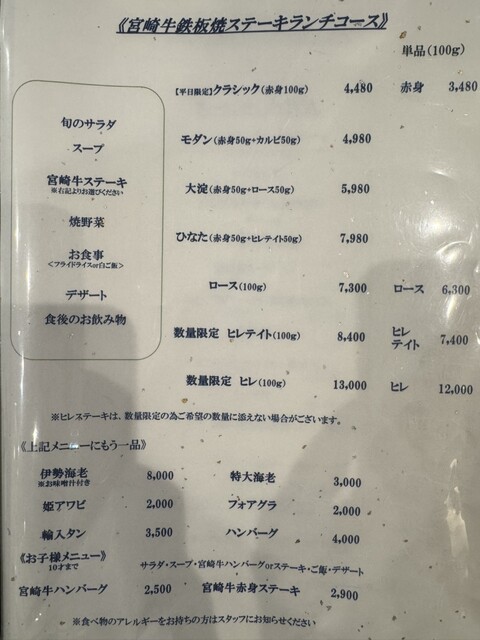 《宮崎牛鉄板焼ステーキランチコース》
単品(100g)
【平日限定】クラシック(赤身100g) 4,480 赤身 3,480
旬のサラダ
モダン(赤身50g+カルビ50g) 4,980
スープ
宮崎牛ステーキ
※右記よりお選びください
大淀(赤身50g+ロース50g) 5,980
焼野菜
ひなた(赤身50g+ヒレテイト50g) 7,980
お食事
<フライドライスor白ご飯>
デザート
ロース(100g) 7,300 ロース 6,300
食後のお飲み物
数量限定 ヒレテイト(100g) 8,400 ヒレテイト 7,400
数量限定 ヒレ(100g) 13,000 ヒレ 12,000
※ヒレステーキは、数量限定の為ご希望の数量に添えない場合がございます。
《上記メニューにもう一品》
伊勢海老 8,000 特大海老 3,000
※お味噌汁付き
姫アワビ 2,000 フォアグラ 2,000
輸入タン 3,500 ハンバーグ 4,000
《お子様メニュー》
10才まで
サラダ・スープ・宮崎牛ハンバーグorステーキ・ご飯・デザート
宮崎牛ハンバーグ 2,500 宮崎牛赤身ステーキ 2,900
※食べ物のアレルギーをお持ちの方はスタッフにお知らせください